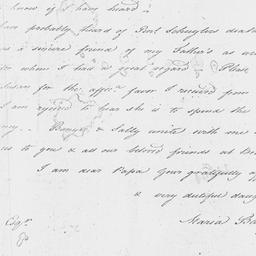 know if I have heard a
have probably heard of Port Schuylers
as a sincere friend of my Father's as we
for whom I had a great regard. Please
for the affec. favor I received from
I am rejoiced to hear she is to spend the
& Sally unite with me
to you & all our beloved friends at
I am dear Papa Your gratefully
& very dutiful daug
Maria Ba
Esqr.